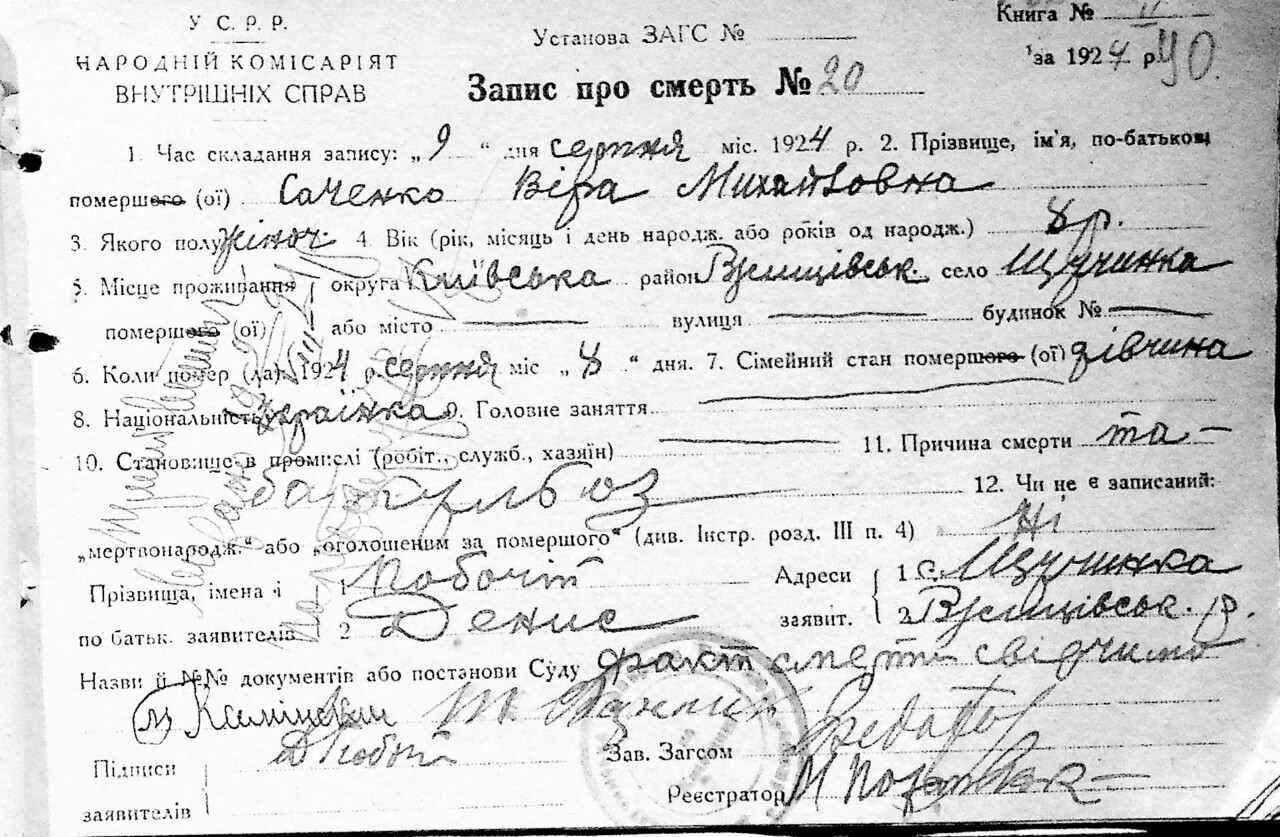 У С. Р. Р.
НАРОДНІЙ КОМІСАРІЯТ
ВНУТРІШНІХ СПРАВ
Установа ЗАГС №
Книга № II
за 1924 р. 40.
Запис про смерть № 20
1. Час складання запису: „ 9 “ дня серпня міс. 1924 р. 2. Прізвище, ім'я, по-батькові
помершого (ої) Саченко Віра Михайловна
3. Якого полу жіноч. 4. Вік (рік, місяць і день народж. або років од народж.) 8 р.
5. Місце проживання округа Київська район Ржищівськ. село Щучинка
помершого (ої) або місто вулиця будинок №
6. Коли помер (ла). 1924 р. серпня міс „ 8 “ дня. 7. Сімейний стан помершого (ої) дівчина
8. Національність українка 9. Головне заняття
10. Становище в промислі (робіт., служб., хазяїн) 11. Причина смерти та-
12. Чи не є записаний:
„мертвонародж.“ або „оголошеним за помершого“ (див. Інстр. розд. III п. 4) Ні
Прізвища, імена і 1 Побочій Адреси 1 с. Щучинка
по батьк. заявителів 2 Денис заявит. 2 Ржищівськ. р.
Назви й №№ документів або постанови Суду факт смерти свідчимо
Підписи
заявителів
Зав. Загсом
Реєстратор